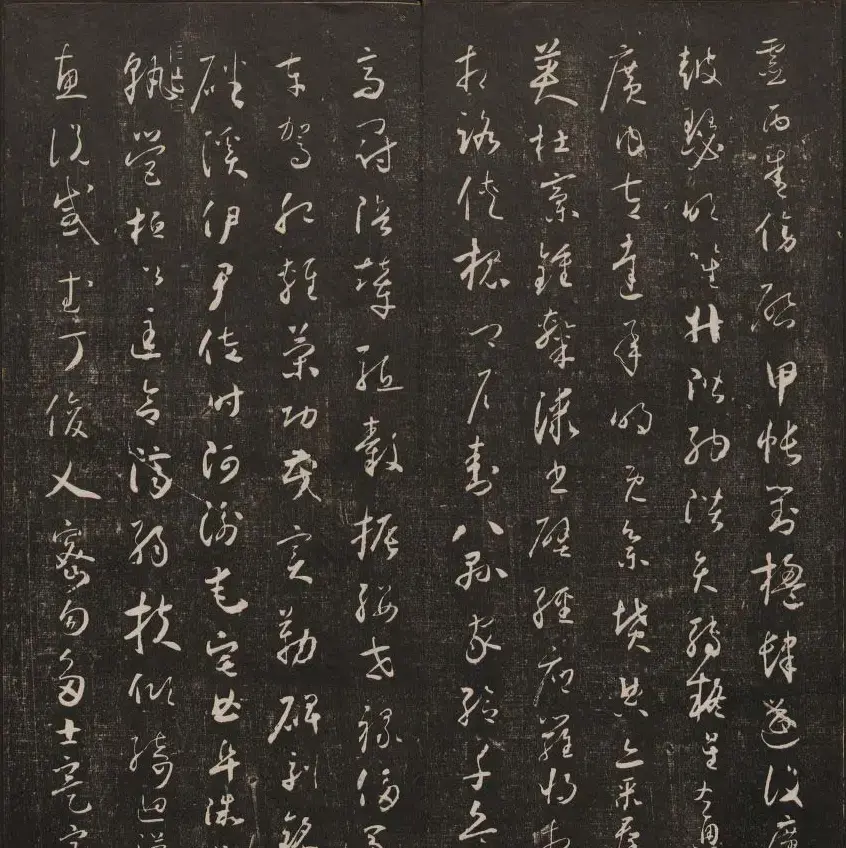 靈丙舍傍啟甲帳對楹肆筵設席
鼓瑟吹笙升階納陛弁轉疑星右通
廣內左達承明既集墳典亦聚群
英杜稾鍾隸漆書壁經府羅將
相路俠槐卿戶封八縣家給千兵
高冠陪輦驅轂振纓世祿侈富
車駕肥輕策功茂實勒碑刻銘
磻溪伊尹佐時阿衡奄宅曲阜微
孰營桓公匡合濟弱扶傾綺迴漢
惠說感武丁俊乂密勿多士寔寧